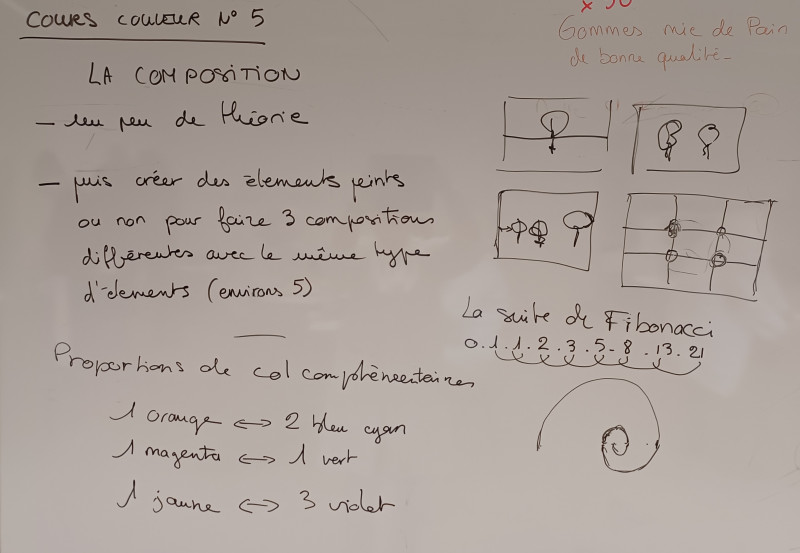 COURS COULEUR N° 5
x 30
Gommes mie de Pain
de bonne qualité_
LA COMPOSITION
– un peu de théorie
– puis créer des élements peints
ou non pour faire 3 compositions
différentes avec le même type
d'elements (environs 5)
La suite de Fibonacci
0.1.1.2.3.5-8.13.21
Proportions de col complémentaires
1 orange <-> 2 bleu cyan
1 magenta <-> 1 vert
1 jaune <-> 3 violet